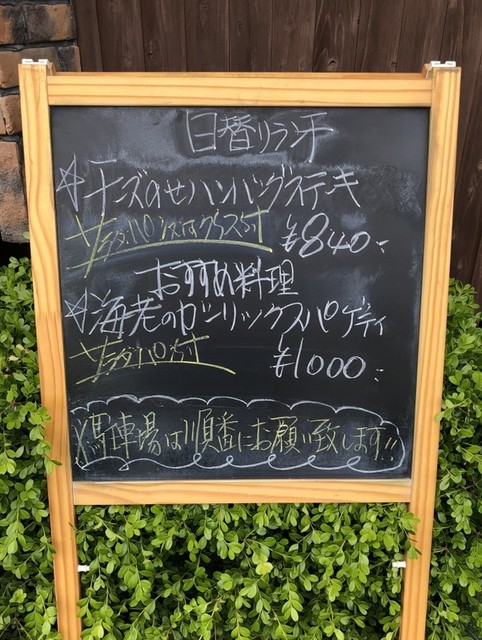 日替りランチ
☆チーズのせハンバーグステーキ
サラダ・パン又はライス付
¥840-
おすすめ料理
☆海老のガーリックスパゲティ
サラダ・パン付
¥1000-
※駐車場は順番にお願い致します!!